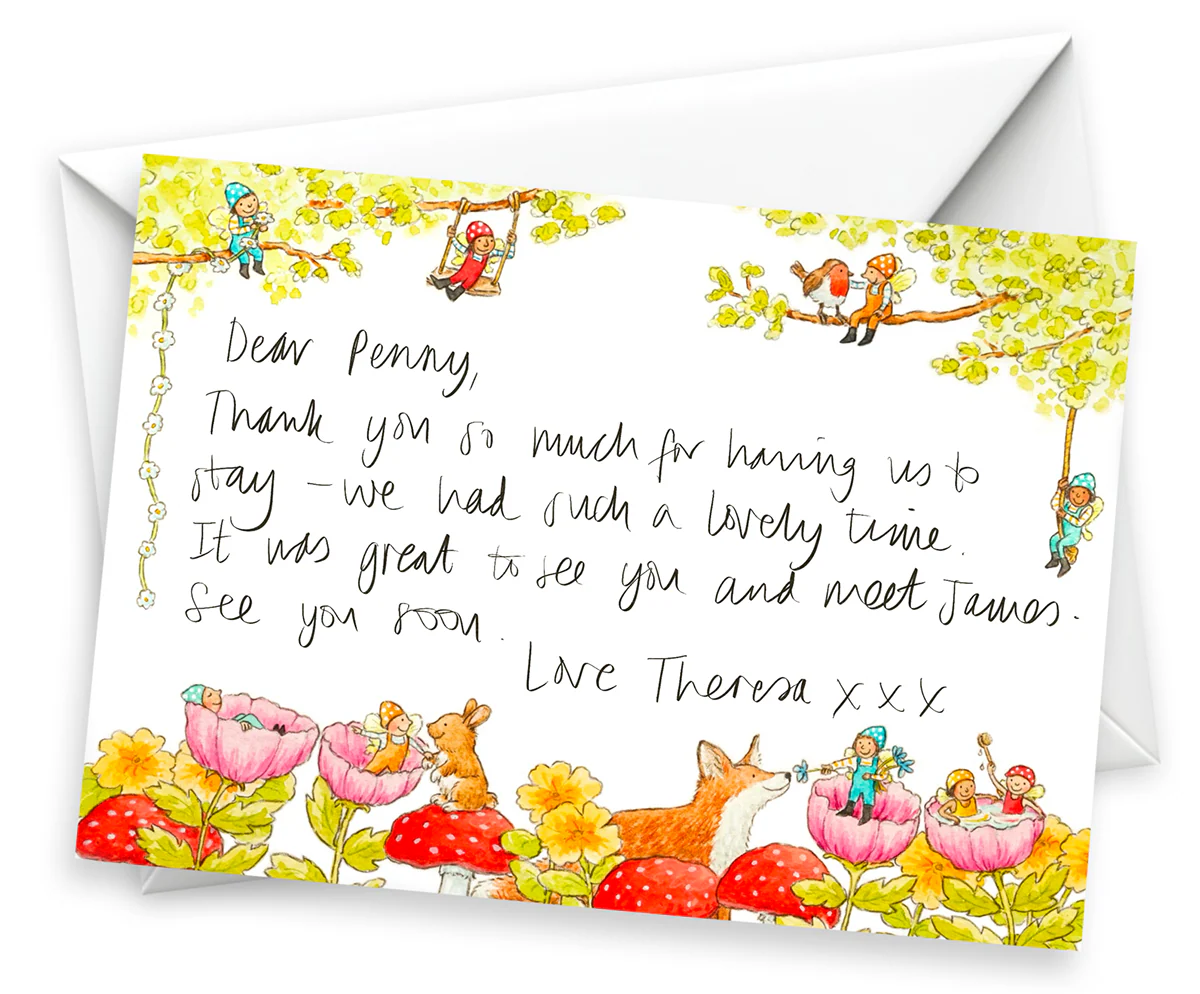 Dear Penny,
Thank you so much for having us to
stay - we had such a lovely time.
It was great to see you and meet James.
See you soon.
Love Theresa x x x